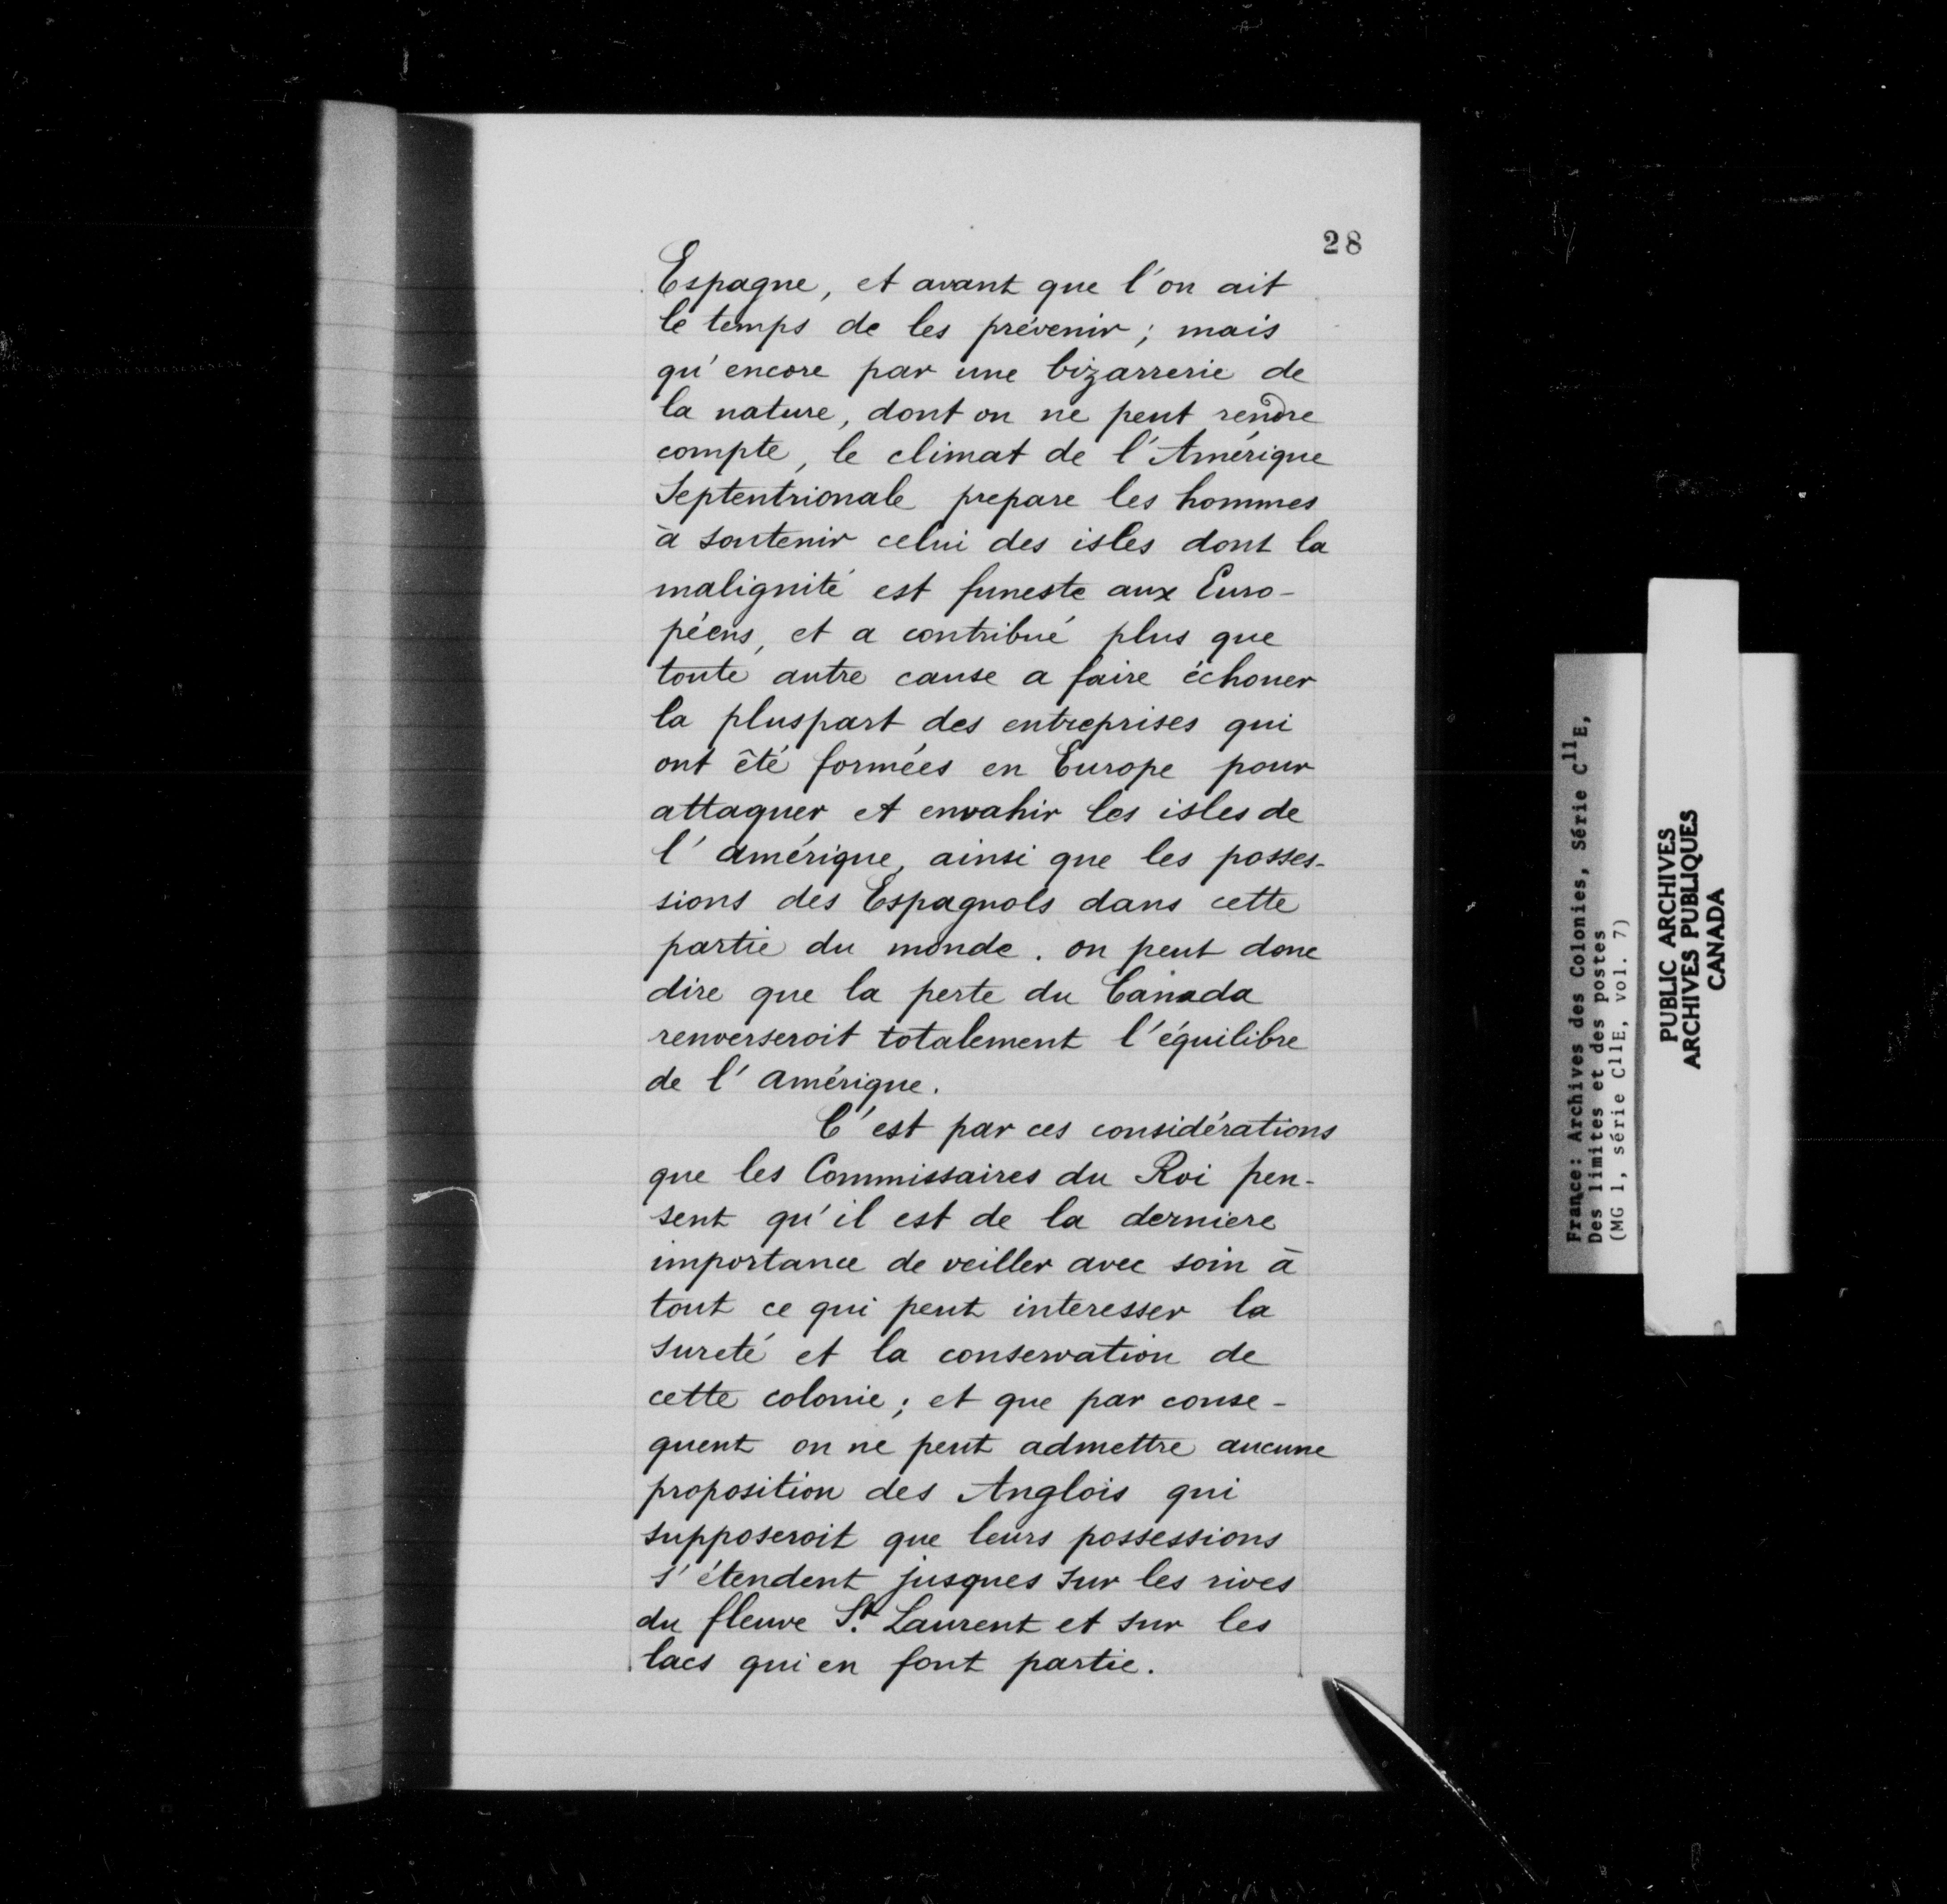 28
Espagne, et avant que l'on ait
le temps de les prévenir; mais
qu'encore par une bizarrerie de
la nature, dont on ne peut rendre
compte, le climat de l'Amérique
Septentrionale prepare les hommes
à soutenir celui des isles dont la
malignité est funeste aux Euro-
péens, et a contribué plus que
toute autre cause a faire échouer
la pluspart des entreprises qui
ont été formées en Europe pour
attaquer et envahir les isles de
l'amérique, ainsi que les posses-
sions des Espagnols dans cette
partie du monde. on peut donc
dire que la perte du Canada
renverseroit totalement l'équilibre
de l'amérique.
C'est par ces considérations
que les Commissaires du Roi pen-
sent qu'il est de la derniere
importance de veiller avec soin à
tout ce qui peut interesser la
sureté et la conservation de
cette colonie; et que par conse-
quent on ne peut admettre aucune
proposition des Anglois qui
supposeroit que leurs possessions
s'étendent jusques sur les rives
du fleuve St. Laurent et sur les
lacs qui en font partie.
France: Archives des Colonies, Série C11E,
Des limites et des postes
(MG 1, série C11E, vol. 7)
PUBLIC ARCHIVES
ARCHIVES PUBLIQUES
CANADA